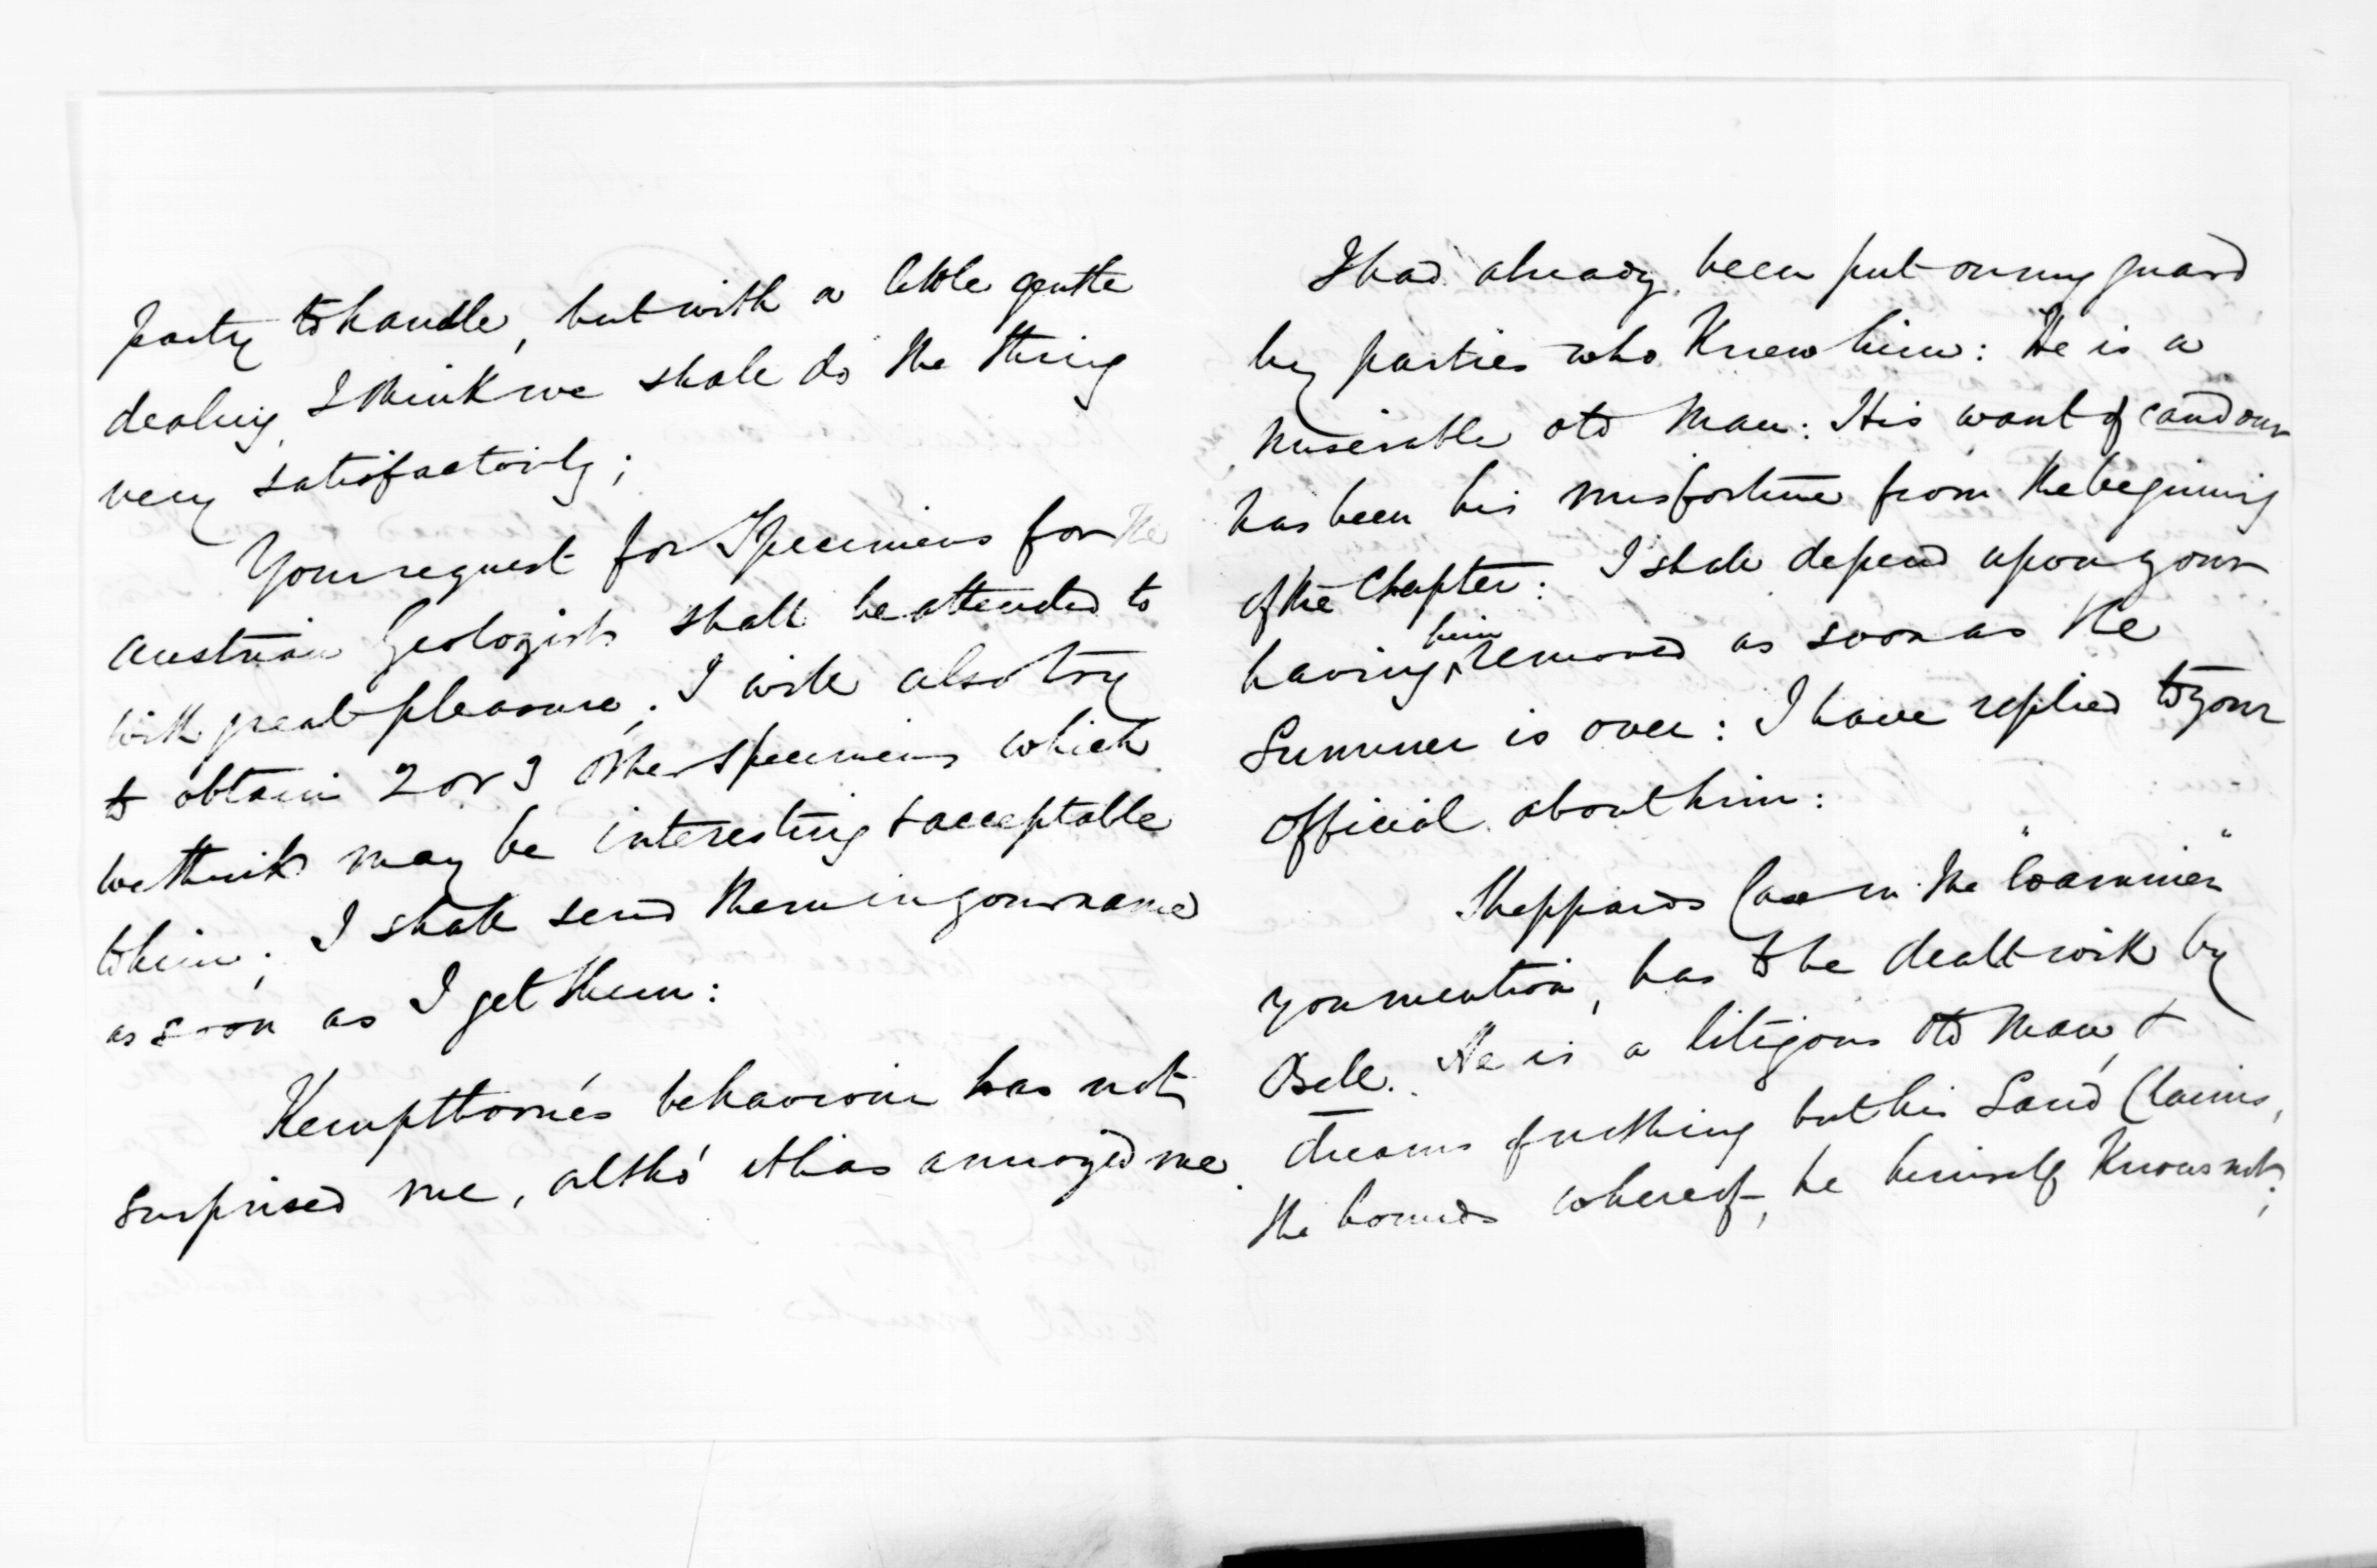 party to handle, but with a little gentle
dealing, I think we shall do the thing
very satisfactorily;
Your request for Specimens for the
Austrian Geologist shall be attended to
with great pleasure; I will also try
to obtain 2 or 3 other Specimens which
we think may be interesting & acceptable
to him; I shall send them in your name
as soon as I get them:
Kempthorne's behaviour has not
surprised me, altho' it has annoyed me.
I had already been put on my guard
by parties who Knew him: He is a
miserable old Man: His want of candour
has been his misfortune from the beginning
of the Chapter: I shall depend upon your
having him removed as soon as the
Summer is over: I have replied to your
official about him:
Sheppards Case in the "Examiner"
you mention, has to be dealt with by
Bell. He is a litigous old Man, &
dreams of nothing but his Land Claims,
the bounds whereof, he himself Knows not;